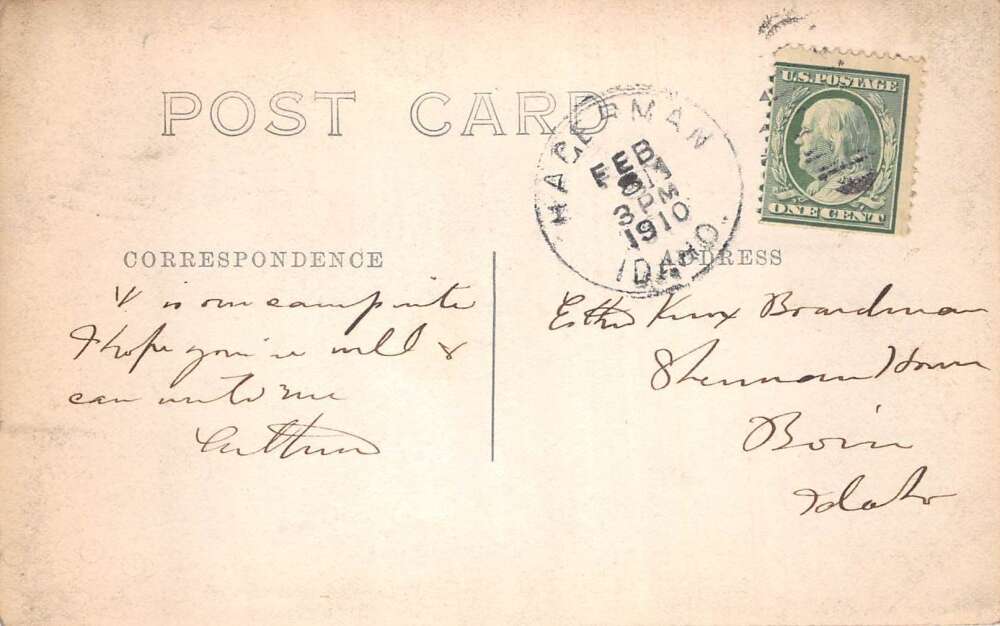 POST CARD
HAGERMAN
FEB
3 PM
1910
IDAHO.
U.S. POSTAGE
ONE CENT
CORRESPONDENCE
ADDRESS
X is our campsite
I hope you're well &
can write me
Arthur
Esther Knox Boardman
Sherman House
Boise
Idaho